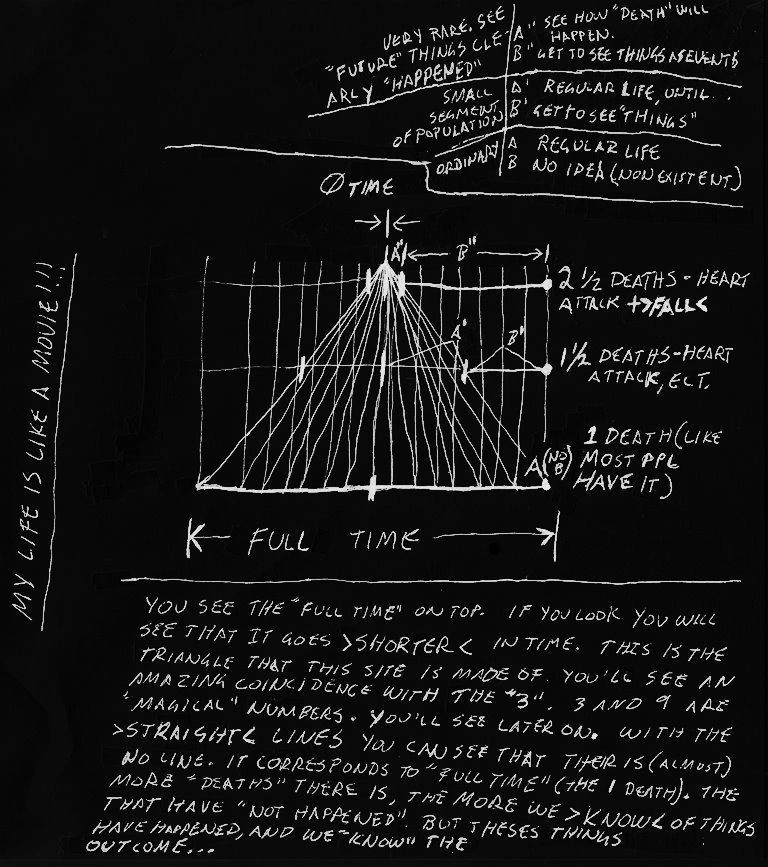 VERY RARE. SEE
"FUTURE" THINGS CLE-
ARLY "HAPPENED"
A" SEE HOW "DEATH" WILL
HAPPEN.
B" GET TO SEE THINGS AS EVENTS
SMALL
SEGMENT
OF POPULATION
A' REGULAR LIFE, UNTIL...
B' GET TO SEE "THINGS"
ORDINARY
A REGULAR LIFE
B NO IDEA (NON EXISTENT)
Ø TIME
A"
B"
2 1/2 DEATHS - HEART
ATTACK +>FALL<
A'
B'
1 1/2 DEATHS-HEART
ATTACK, ECT.
A (NO B)
1 DEATH (LIKE
MOST PPL
HAVE IT)
FULL TIME
MY LIFE IS LIKE A MOVIE!!!
YOU SEE THE "FULL TIME" ON TOP. IF YOU LOOK YOU WILL
SEE THAT IT GOES >SHORTER< IN TIME. THIS IS THE
TRIANGLE THAT THIS SITE IS MADE OF. YOU'LL SEE AN
AMAZING COINCIDENCE WITH THE "3". 3 AND 9 ARE
"MAGICAL" NUMBERS. YOU'LL SEE LATER ON. WITH THE
>STRAIGHT< LINES YOU CAN SEE THAT THEIR IS (ALMOST)
NO LINE. IT CORRESPONDS TO "FULL TIME" (THE 1 DEATH). THE
MORE "DEATHS" THERE IS, THE MORE WE >KNOW< OF THINGS
THAT HAVE "NOT HAPPENED". BUT THESES THINGS
HAVE HAPPENED, AND WE "KNOW" THE
OUTCOME...